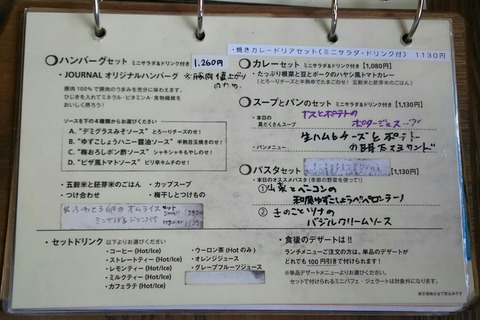 ・焼きカレードリアセット(ミニサラダ・ドリンク付) 1130円
ハンバーグセット ミニサラダ&ドリンク付き 1,260円
・JOURNAL オリジナルハンバーグ
豚肉100%で豚肉のうまみを充分に味わえます。
ひじきを入れてミネラル・ビタミンA・食物繊維を
おいしく摂ろう!
ソースを下の4種類からお選びください
A.“デミグラスみそソース” とろ~りチーズのせ!
B.“ゆずこしょうハニー醤油ソース” 半熟目玉焼きのせ!
C.“梅おろしポン酢ソース” シャキシャキもやしのせ!
D.“ピザ風トマトソース” ピリ辛キムチのせ!
・五穀米と胚芽米のごはん ・カップスープ
・つけ合わせ ・梅干しとつけもの
ふわとろ卵のオムライス
ミニサラダ&ドリンク付
カレーセット ミニサラダ&ドリンク付き [1,080円]
・たっぷり根菜と豆とポークのハヤシ風トマトカレー
スープとパンのセット ミニサラダ&ドリンク付き [1,130円]
・本日の
具だくさんスープ
ナスとポテトの
ポタージュスープ
・パンメニュー
生ハムとチーズとポテサラ
パスタセット [1,130円]
・本日のオススメパスタ (季節の野菜を使って!!)
① 山菜とベーコンの
和風ゆずこしょうペペロンチーノ
② きのことツナの
バジルクリームソース
・セットドリンク 以下よりお選びください
・コーヒー (Hot/Ice)
・ストレートティー (Hot/Ice)
・レモンティー (Hot/Ice)
・ミルクティー (Hot/Ice)
・カフェラテ (Hot/Ice)
・ウーロン茶 (Hot のみ)
・オレンジジュース
・グレープフルーツジュース
・食後のデザートは!!
ランチメニューご注文の方は、単品のデザートが
どれでも100円引きで付けられます。
※単品デザートメニューよりお選びください。
セットで付けられるミニパフェ・ジェラートは対象外になります。